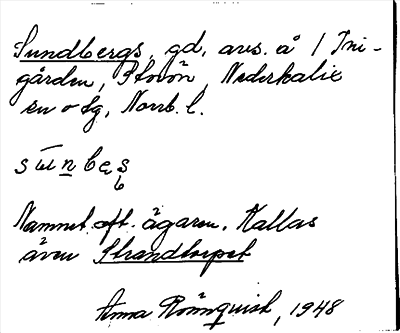 Sundbergs, gd, avs. å 1 Ini-
gården, Storön, Nederkalix
sn o lg, Norrb. l.
Namnet eft. ägaren. Kallas
även Strandtorpet
Anna Rönnquist, 1948